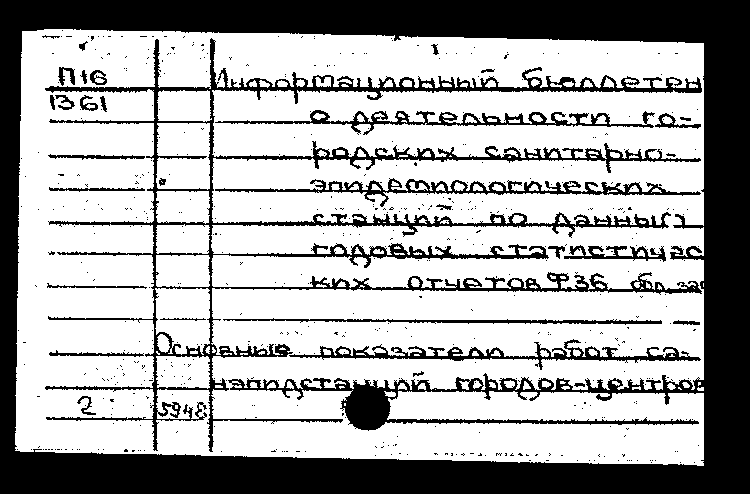 П16 Информационный бюллетен
1361
о деятельности го-
родских санитарно-
эпидемиологических
станций по данным
годовых статистичес
ких отчетов Ф.36
Основные показатели работ са-
нэпидстанций городов-центров
2 5948